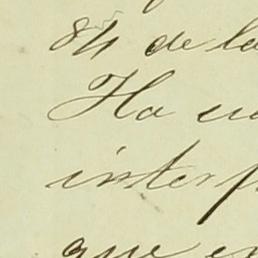 84 de la
Ha
inter
que